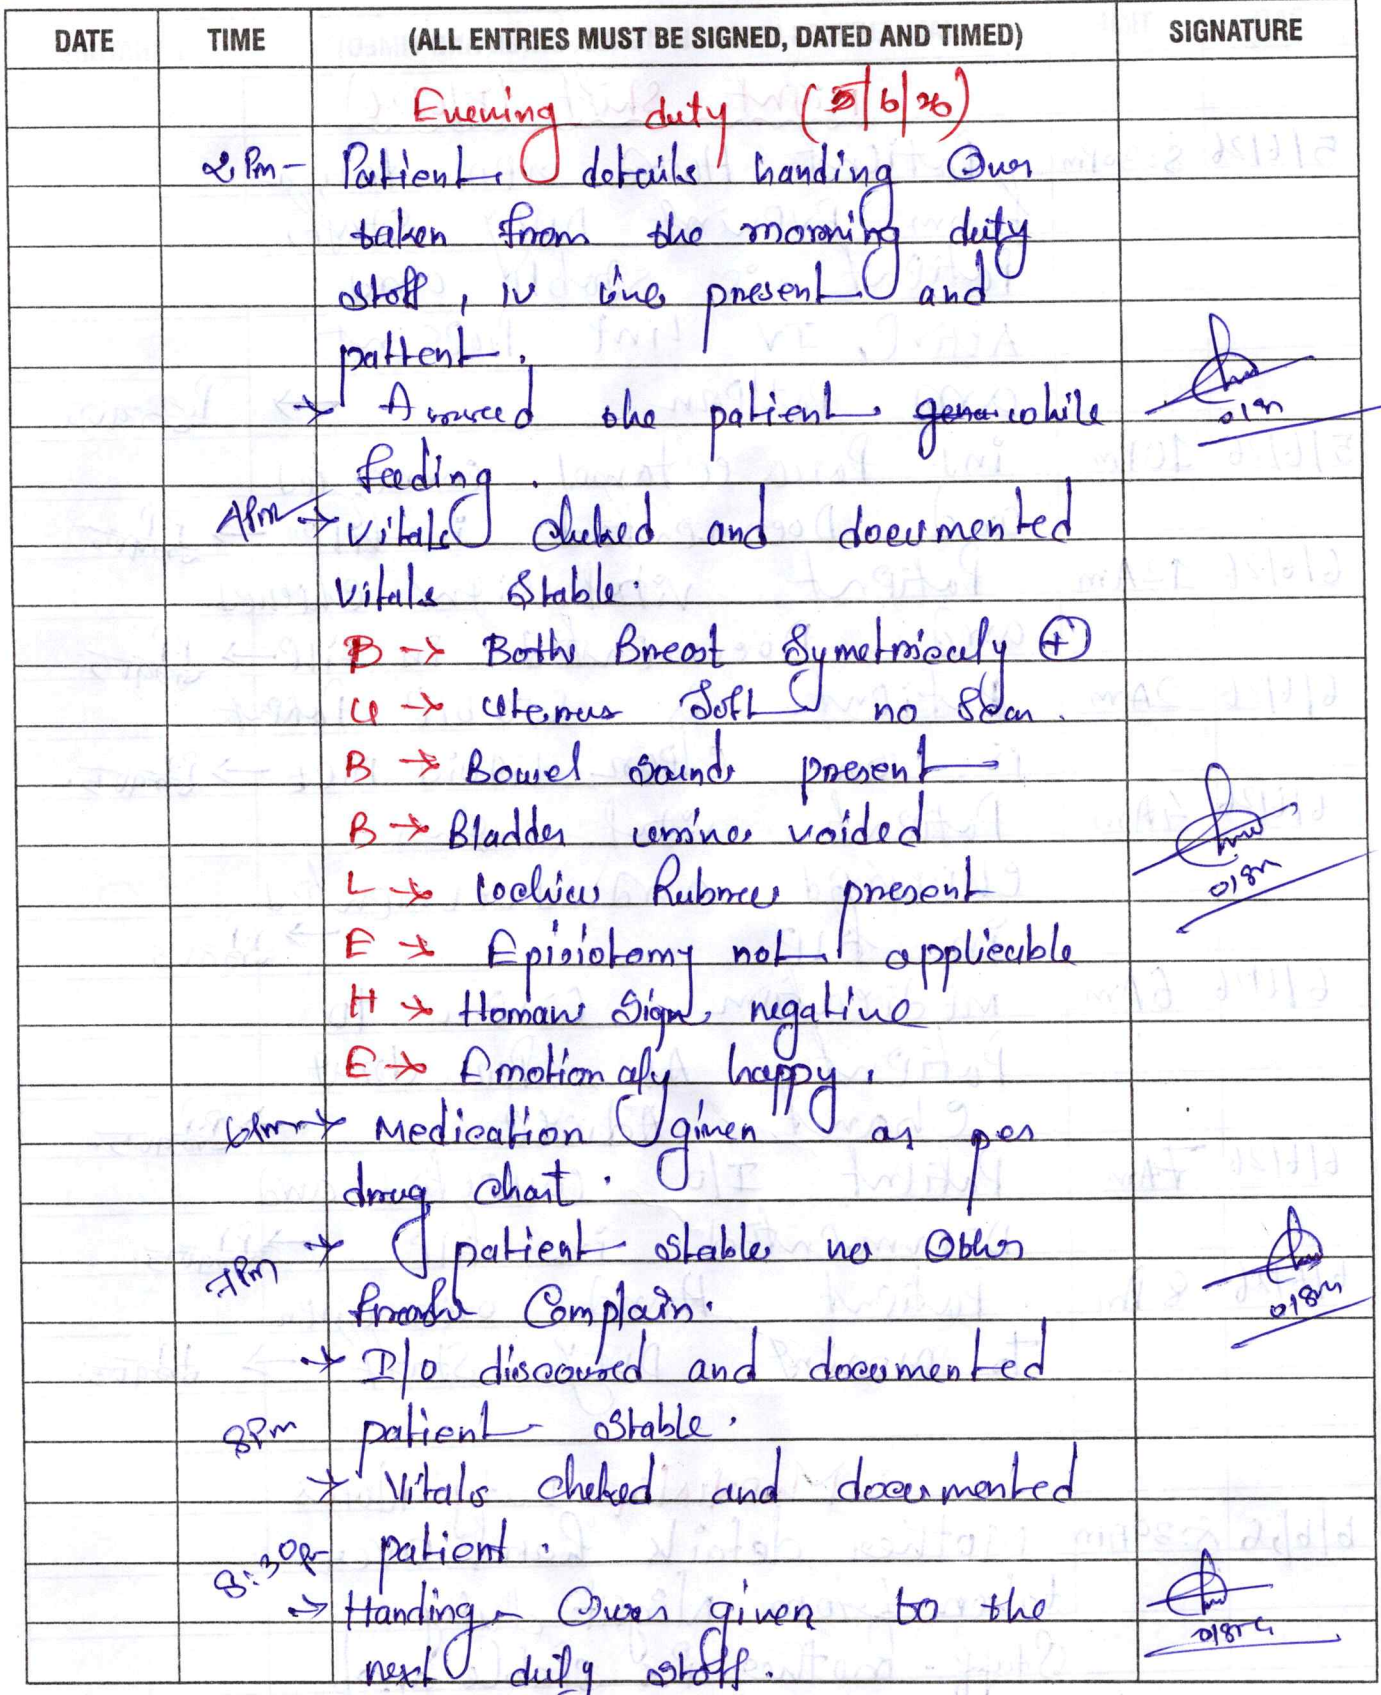 DATE TIME (ALL ENTRIES MUST BE SIGNED, DATED AND TIMED) SIGNATURE
Evening duty (5/6/26)
2 Pm - Patient details handing Over
taken from the morning duty
staff, IV line present and
pattent.
→ Assured the patient while
feeding.
4Pm → Vitals cheked and documented
Vitals Stable.
B → Both Breast Symetrically +
U → Uterus Soft no
B → Bowel sounds present
B → Bladder urine voided
L → Lochia Rubra present
E → Episiotomy not applicable
H → Homans Sign negative
E → Emotionaly happy.
6pm → Medication given as per
drug chart.
7Pm → patient stable no Other
fresh Complain.
→ I/O and documented
8Pm patient stable.
→ Vitals cheked and documented
8:30Pm patient.
→ Handing Over given to the
next duty staff.